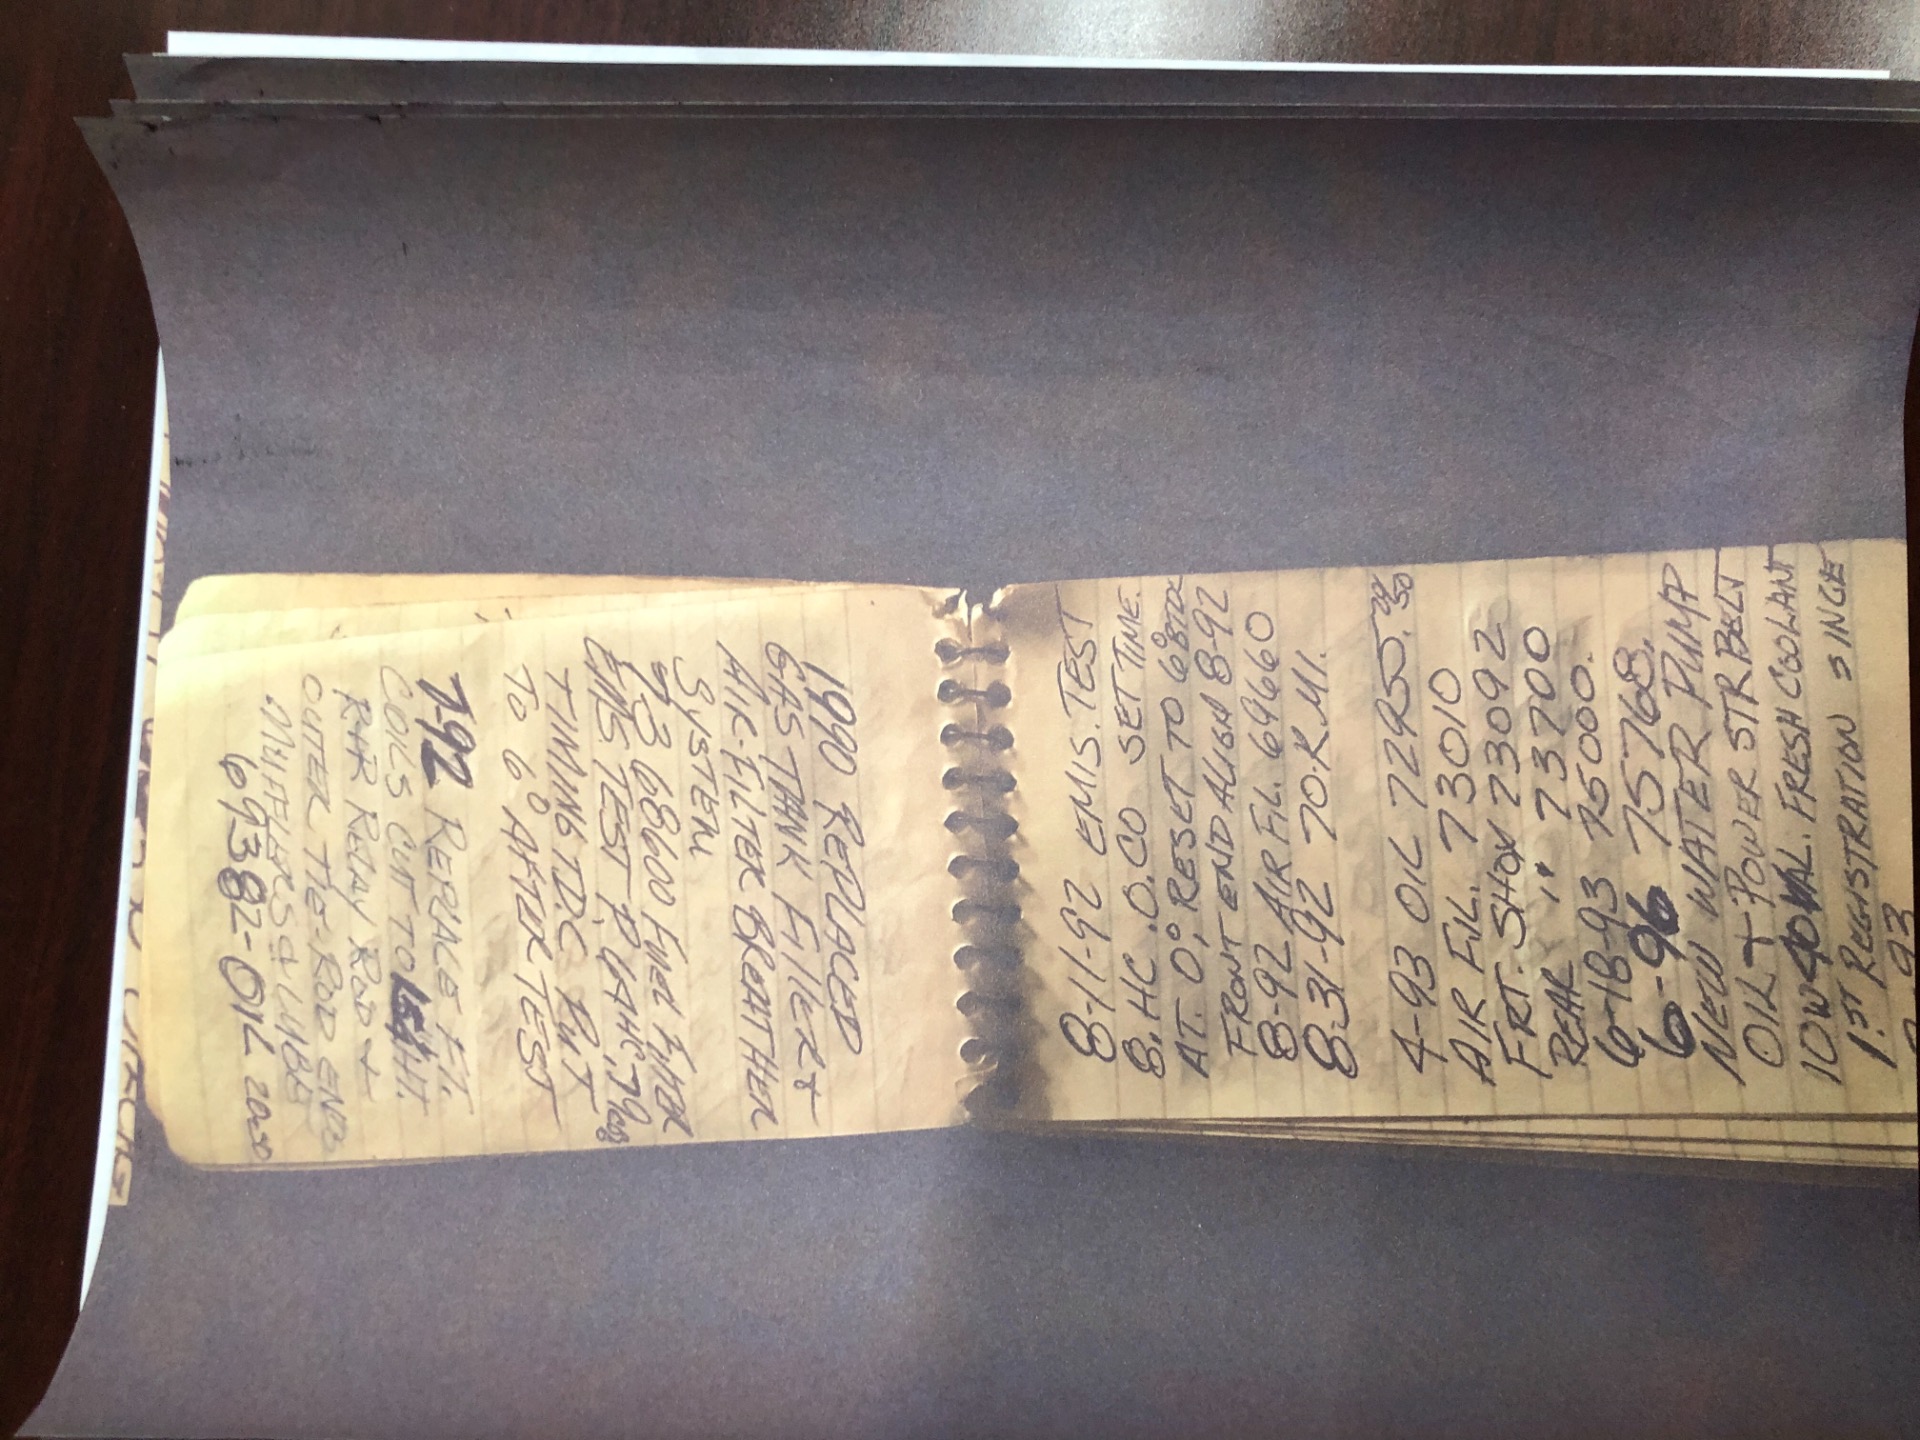 1990 REPLACED
GAS TANK FILLER +
AIR-FILTER BREATHER
SYSTEM
68600 FUEL FILTER
EMS TEST
TIMING T.D.C. PUT
TO 6° AFTER TEST
7-92 REPLACE FT.
COILS CUT TO HT.
R+R RELAY ROD +
OUTER TIE-ROD ENDS
MUFFLERS + LUBE
69382-OIL 20-50
8-11-92 EMIS. TEST
8.HC .0.CO SET TIME.
AT. 0°, RESET TO 6° BTDC
FRONT END ALIGN 8-92
8-92 AIR FIL. 69660
8-31-92 70.K.MI.
4-93 OIL 72950. 20/50
AIR FIL. 73010
FRT. SHOX 73092
REAR " 73700
6-18-93 75000.
6-96 75768.
NEW WATER PUMP
OIL + POWER STR BELT
10W40 VAL. FRESH COOLANT
1.ST REGISTRATION SINCE
93